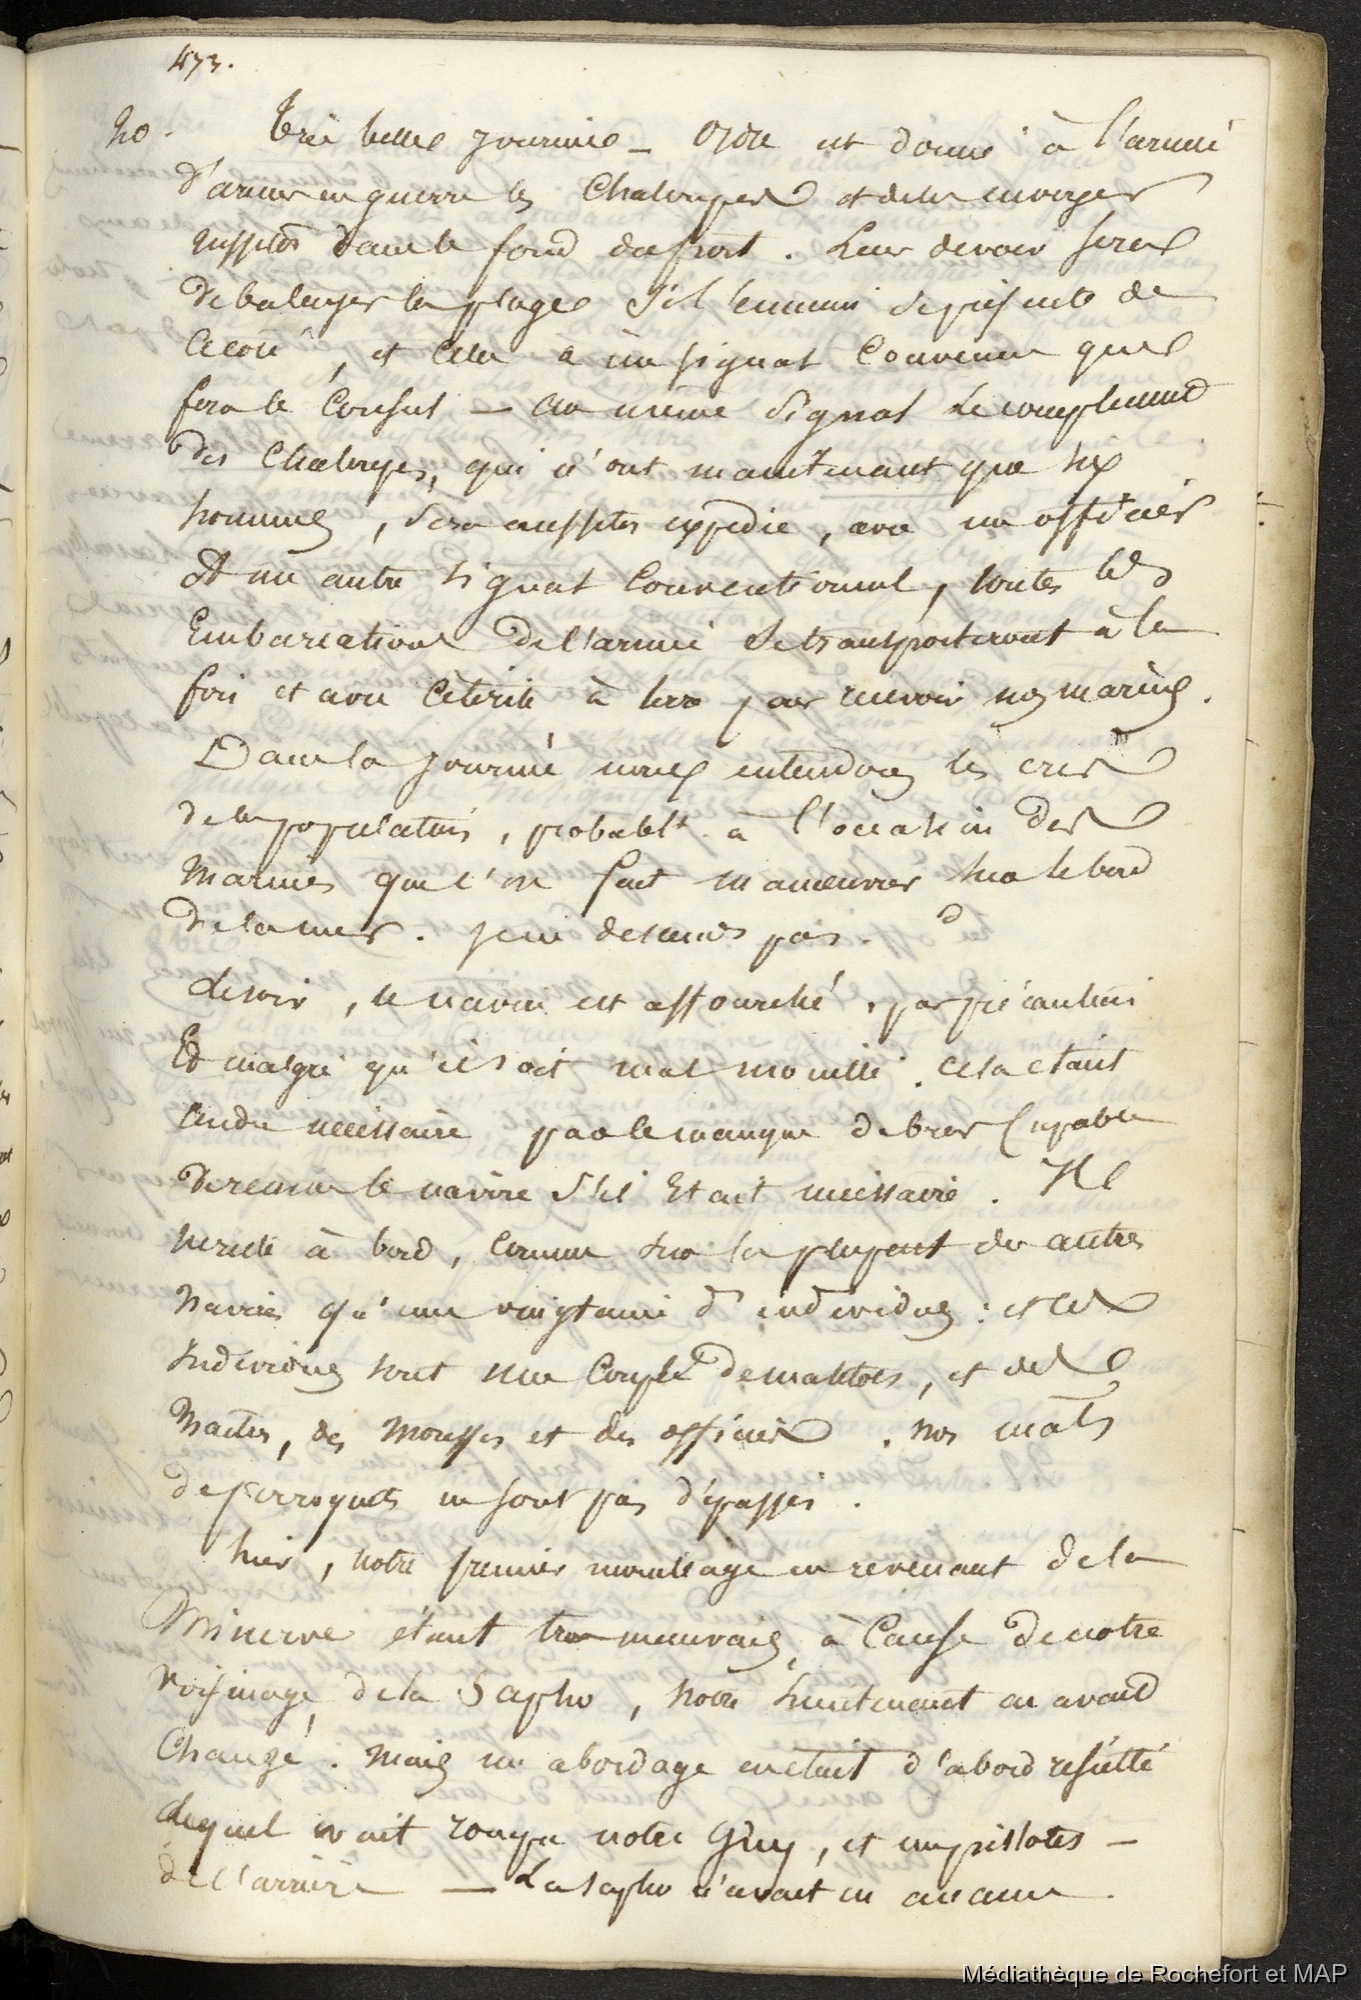 473.
20. Très belle journée _ Ordre est donné à l'armée
d'armer en guerre les Chaloupes et de les envoyer
aussitôt dans le fond du port. Leur devoir sera
de balayer la plage si l'ennemi se présente de
ce côté, et cela à un signal convenu que
fera le Consul _ au même signal le complément
des Chaloupes, qui n'ont maintenant que six
hommes, sera aussitôt expédié, avec un officier
A un autre signal conventionnel, toutes les
Embarcations de l'armée se transporteront à la
fois et avec célérité à terre pour recevoir nos marins.
Dans la journée nous entendons les cris
de la population, probablt. à l'occasion des
Marines que l'on fait manoeuvrer sur le bord
de la mer. je ne descends pas.
Le soir, le navire est affourché, par précaution
Et malgré qu'il soit mal mouillé. Cela étant
rendu nécessaire par le manque de bras capables
de remuer le navire s'il était nécessaire. Il
ne reste à bord, comme sur la plupart des autres
navires qu'une vingtaine d'individus : et ces
Individus sont une couple de matelots, et des
Maîtres, des Mousses et des officiers. nos mâts
de perroquets ne sont pas dépassés.
hier, notre premier mouillage en revenant de la
Minerve étant très mauvais, à cause de notre
voisinage de la Sapho, notre Lieutenant en avait
changé. Mais un abordage en était d'abord résulté
duquel avait rompu notre Guy, et un pistolet _
de l'arrière _ La Sapho n'avait eu aucune.
Médiathèque de Rochefort et MAP